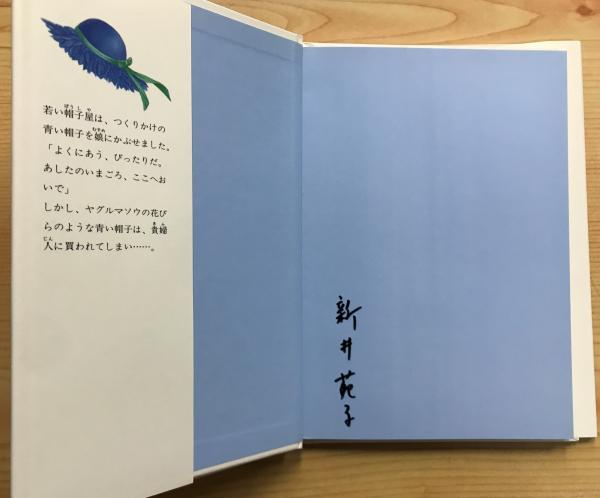 若い帽子屋は、つくりかけの
青い帽子を娘にかぶせました。
「よくにあう、ぴったりだ。
あしたのいまごろ、ここへお
いで」
しかし、ヤグルマソウの花び
らのような青い帽子は、貴婦
人に買われてしまい……。
新井苑子